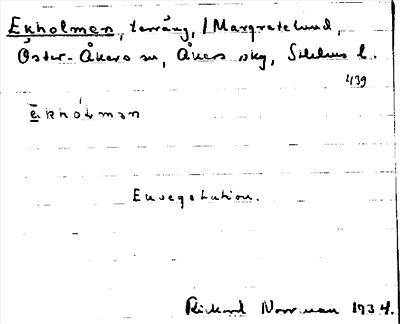 Ekholmen, terräng, /Margretelund,
Öster-Åkers sn, Åkers skg, Sthlms l.
439
ēkhól̀mən
Envegetation.
Rickard Norrman 1934.